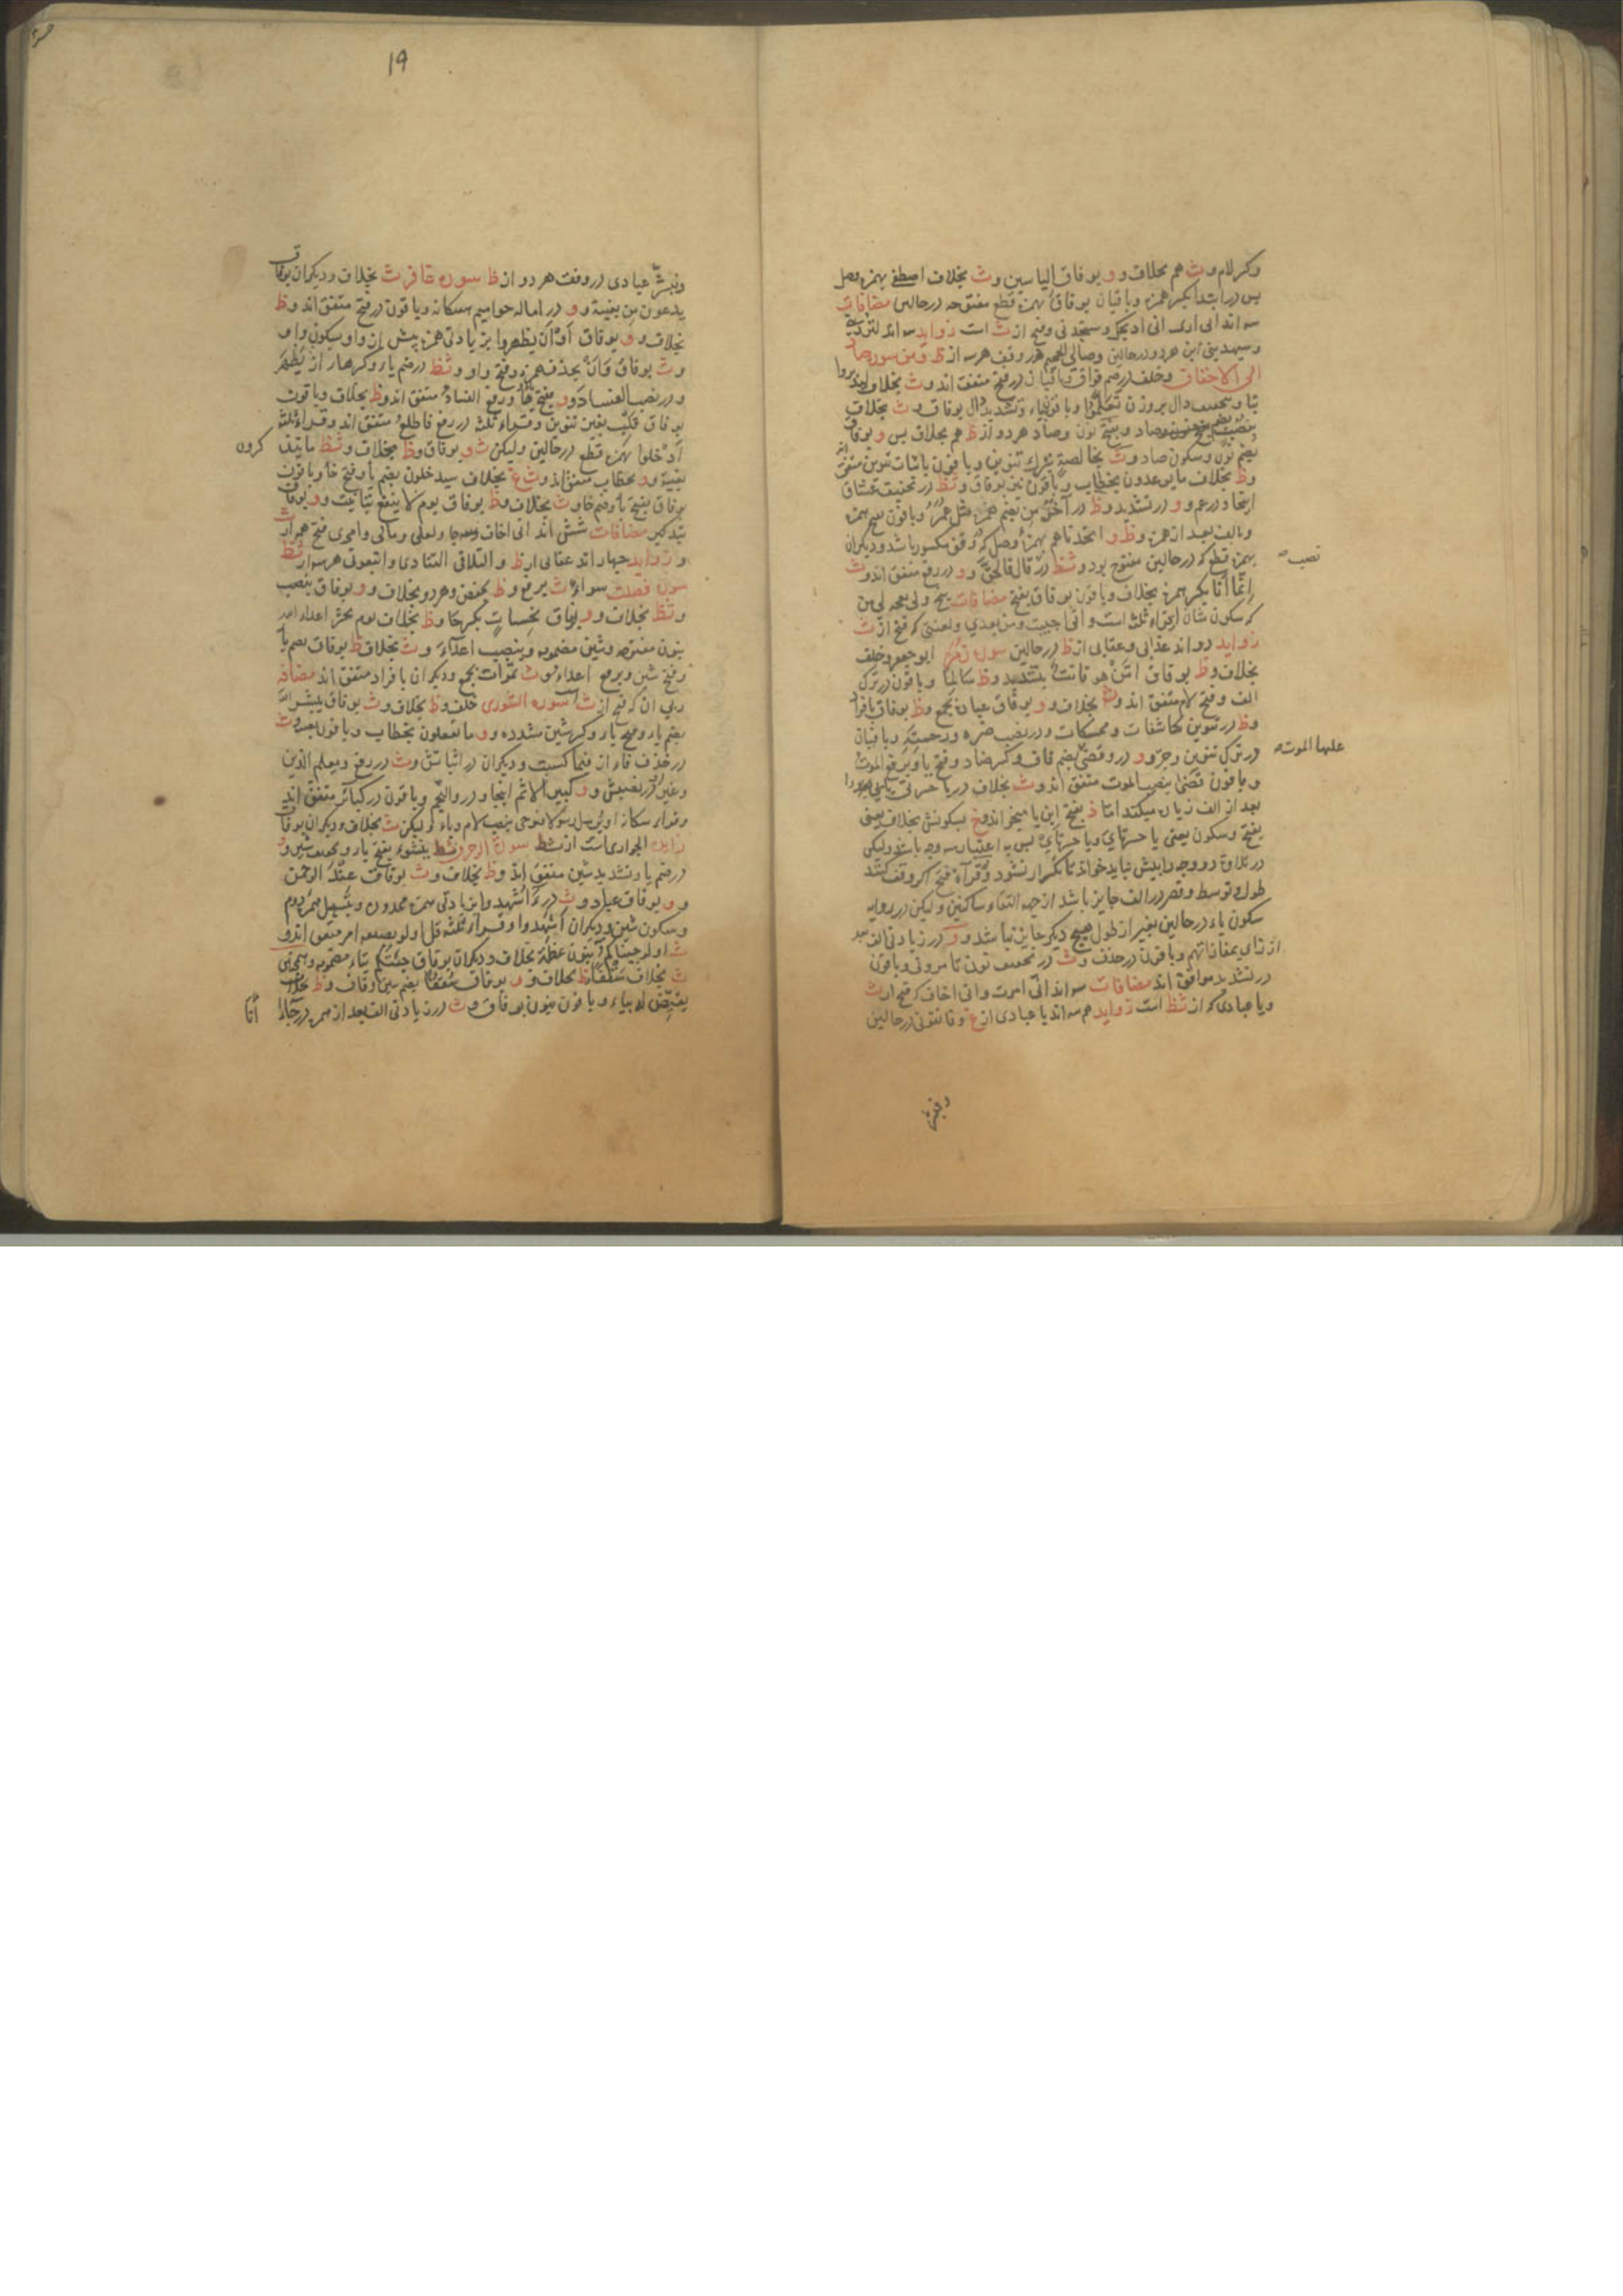 وکسر لام و ث هم بخلاف و و بوفاق إلیاسین و ث بخلاف اصطفی بهمزه وصل
پس در ابتدا بکسر همزه و باقیان بوفاق بهمزه قطع مفتوحه در حالین مضافات
سه اند انی اری انی اذبحک و ستجدنی و فتح از ث است زواید سه اند لتردین
و سیهدینی این هر دو در حالین و صالی الجحیم در وقف هر سه از ظ و من سوره ص
الی الاحقاف و خلف در ضم فواق با باقیان در فتح متفق اند و ث بخلاف لیدبروا
بتا و تخفیف دال بروزن تفعلوا و باقون بیاء و تشدید دال بوفاق و ث بخلاف
بنصب بضم نون و صاد و بفتح نون و صاد هر دو از ظ هم بخلاف پس و بوفاق
بضم نون و سکون صاد و ث بخالصة بترک تنوین و باقون باثبات تنوین متفق اند
و ظ بخلاف ما یوعدون بخطاب و باقون نیز بوفاق و ثظ در تخفیف غساق
اینجا و در عم و و در تشدید و ظ در آخر من بضم همزه مثل عمر و باقون بفتح همزه
و بالف بعد از همزه و ظ و اتخذناهم بهمزه وصل که در وقف مکسور باشد و دیگران
بهمزه قطع که در حالین مفتوح بود و ثظ در قال فالحق و و در رفع متفق اند و ث
نصب
إنما أنا بکسر همزه بخلاف و باقون بوفاق بفتح مضافات
که سکون شان از قراء ثلث است و انی احببت و من بعدی و لعنتی که فتح از ث
زواید دو اند عذابی و عقابی از ظ در حالین سوره زمر ابو جعفر و خلف
بخلاف و ظ بوفاق امّن هو قانت بتشدید و ظ سالما و باقون در ترک
الف و فتح لام متفق اند و ث بخلاف و و بوفاق عباده بجمع و ظ بوفاق بافراد
و ظ در تنوین کاشفات و ممسکات و در نصب ضره و رحمته و باقیان
در ترک تنوین و جر و و در و قضی بضم قاف و کسر ضاد و فتح یا و برفع الموت
علیها الموت
و باقون قضی بنصب الموت متفق اند و ث بخلاف در یا حسرتی
بعد از الف زیاده میکند اما ذ بفتح این یا میخواند و خ بسکونش بخلاف یعنی
بفتح و سکون یعنی یا حسرتای و یا حسرتای پس به اعتبار سه وجه باشد و لیکن
در تلاوة دو وجه را بیش نباید خواند تا تکرار نشود و قراءة فتح اگر وقف کنند
طول و توسط و قصر در الف جایز باشد از جهة التقاء ساکنین و لیکن در روایه
سکون یاء در حالین بغیر از طول هیچ دیگر جایز نباشد و و در زیادتی الف بعد
از زای بمفازاتهم و باقون در حذف و ث در تخفیف نون تامرونی و باقون
در تشدید موافق اند مضافات سه اند انی امرت و انی اخاف که فتح از ث
و یا عبادی که از ثظ است زواید هم سه اند یا عبادی از غ و فاتقونی در حالین
و فبشر
19
و فبشر عبادی در وقف هر دو از ظ سوره غافر ث بخلاف و دیگران بوفاق
یدعون من بغیبة و و در اماله حوامیم سبکانه و باقون در فتح متفق اند و ظ
بخلاف و و بوفاق أو أن یظهروا بزیادتی همزه پیش از واو و سکون واو
و ث بوفاق و أن بحذف همزه و فتح واو و ثظ در ضم یا و کسر ها از أن یظهر
و در نصب الفساد و و بفتح یا و رفع الفساد متفق اند و ظ بخلاف و باقون
بوفاق قلب بغیر تنوین و قراء ثلث در رفع فاطلع متفق اند و قراء ثلثه
أدخلوا بهمزه قطع در حالین و لیکن ث و بوفاق و ظ بخلاف و ثظ ما یتذ
کرون
بغیبة و و بخطاب متفق اند و ث غ بخلاف سیدخلون بضم یا و فتح خا و باقون
بوفاق بفتح یا و ضم خا و ث بخلاف و ظ بوفاق یوم لا ینفع بتانیث و و بوفاق
بتذکیر مضافات شش اند انی اخاف سه جا و لعلی و مالی و امری فتح همه از ث
و زواید چهار اند عقابی از ظ و التلاقی التنادی و اتبعونی هر سه از ثظ
سوره فصلت سواء ث برفع و ظ بخفض و هر دو بخلاف و و بوفاق بنصب
و ثظ بخلاف و و بوفاق نحسات بکسر حا و ظ بخلاف یوم نحشر اعداء الله
بنون مفتوحه و شین مضمومه و بنصب اعداء و ث بخلاف ظ بوفاق بضم یا
و فتح شین و برفع اعداء و ث ثمرات بجمع و دیگران بافراد متفق اند مضاف
ربی ان که فتح از ث است سوره الشوری خلف و ظ بخلاف و ث بوفاق یبشر الله
بضم یا و فتح با و کسر شین مشدده و و ما تفعلون بخطاب و باقون بغیبه و ث
در حذف فاء از فبما کسبت و دیگران در اثباتش و ث در رفع و یعلم الذین
و غیر او در نصبش و و کبیر الاثم اینجا و در والنجم و باقون در کبائر متفق اند
و قراء سکانه او یرسل رسولا فیوحی بنصب لام و یاء و لیکن ث بخلاف و دیگران بوفاق
زایده الجواری است از ثظ سورة الزخرف ثظ ینشوء بفتح یا و تخفیف شین و و
در ضم یا و تشدید شین متفق اند و ظ بخلاف و ث بوفاق عند الرحمن
و و بوفاق عباد و ث در ءأشهدوا بزیادتی همزه ممدوده و بتسهیل همزه دوم
و سکون شین و دیگران أشهدوا و قراء ثلثه قل اولو بصیغه امر متفق اند و
ث اولو جئناکم بنون عظمة بخلاف و دیگران بوفاق جئتکم بتاء مضمومه و همچنین
ث بخلاف سقفا و ظ بخلاف و و بوفاق سقفا بضم سین و قاف و ظ بخلاف
یقیض له بیاء و باقون بنون بوفاق و ث در زیادتی الف بعد از همزه در جاءا
انا